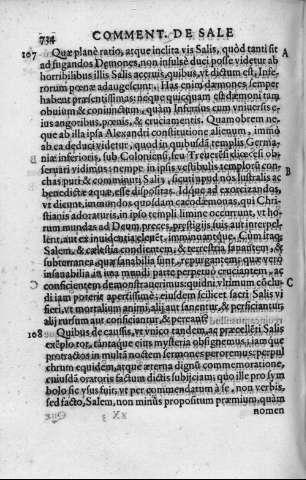 734 COMMENT. DE SALE
107 Quæ planè ratio, atque inclita vis Salis, quòd tanti sit A
ad fugandos Dæmones, non insulsè duci posse videtur ab
horribilibus illis Salis aceruis, quibus, vt dictum est, Infe-
rorum pœnæ adaugescunt. Has enim dæmones semper
habent præsentissimas: neque quicquam est dæmoni tam
obuium & coniunctum, quàm Infensus cum vniuersis e-
ius angoribus, pœnis, & cruciamentis. Quamobrem ne-
que ab illa ipsa Alexandri constitutione alienum, immò
ab ea deduci videtur, quod in quibusdā templis Germa-
niæ inferioris, sub Coloniensi, seu Treuerensi
seruari vidimus: nempe in ipsis vestibulis templorū con-
chas puri & comminuti Salis, sicuti apud nos lustralis ac
benedictæ aquæ, esse dispositas. Id quod ad exorcizandos,
vt dicunt, immundos quosdam cacodæmonas, qui Chri-
stianis adoraturis, in ipso templi limine occurrunt, vt ho-
rum mundas ad Deum preces, præstigijs suis aut interpel-
lent, aut ex inuidentia elegēt, imminuantque. Cùm itaq;
Salem, & cælestia condientem, & terrestria sanantem, &
subterranea quæ sanabilia sunt, repurgantem: quæ verò
insanabilia, in iusta mundi parte perpetuò cruciantem, ac
conficientem demonstrauerimus: quidni vltimum cōclu- C
di iam poterit apertissimè; eiusdem scilicet sacri Salis vi
fieri, vt mortalium animi, alij aut sanentur, & perficiantur:
alij rursum aut consciantur, & pereant?
108 Quibus de caussis, et vnico tandem, ac præcellēti Salis
exēplo tot, tantaque eius mysteria obsignemus; iamque
protractos in multā noctem sermones peroremus; perpul
chrum equidem, atque æterna dignū commemoratione,
cuiusdā oratoris factum dictis subijciam: quo ille pro sym
bolo sic vsus fuit, vt per commendatum à se, non verbis,
sed facto, Salem, non minùs propositum præmium, quàm
nomen